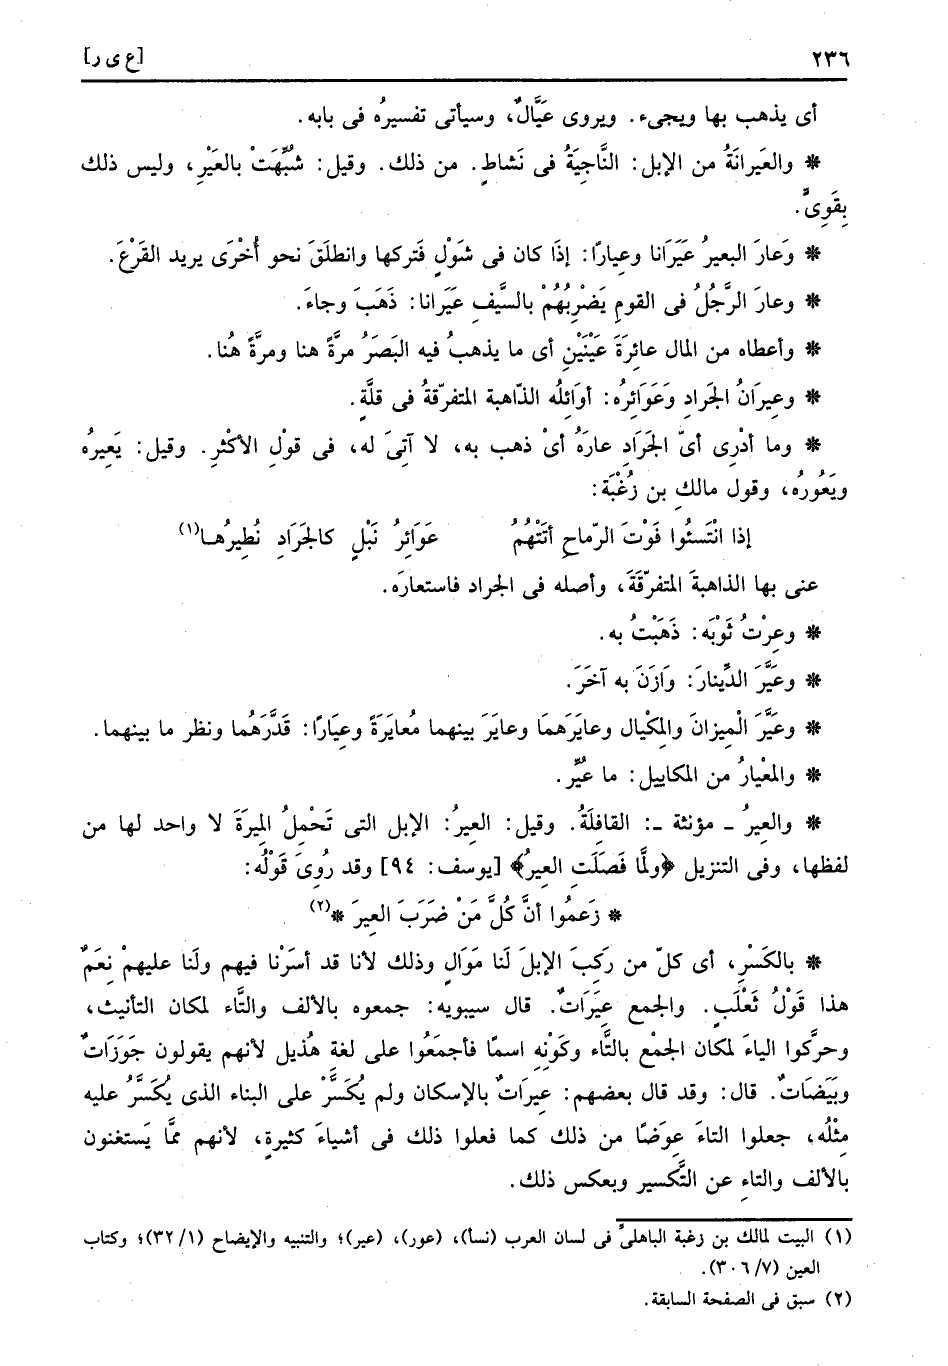 ٢٣٦ [ع ى ر]
أى يذهب بها ويجىء. ويروى عَيَّالٌ، وسيأتى تفسيرُه فى بابه.
* والعَيرانَةُ من الإبل: النَّاجِيَةُ فى نَشاطٍ. من ذلك. وقيل: شُبِّهَتْ بالعَيْرِ، وليس ذلك
بِقَوِىٍّ.
* وَعارَ البعيرُ عَيَرَانا وعِيارًا: إذَا كان فى شَوْلٍ فَتركها وانطلَقَ نحو أُخْرَى يريد القَرْعَ.
* وعارَ الرَّجُلُ فى القومِ يَضْرِبُهُمْ بالسَّيفِ عَيَرانا: ذَهَبَ وجاءَ.
* وأعطاه من المال عائِرَةَ عَيْنَيْنِ أى ما يذهبُ فيه البَصَرُ مرَّةً هنا ومرةً هُنا.
* وعِيرَانُ الجَرادِ وَعَوَائِرُه: أوَائِلُه الذّاهبة المتفرّقةُ فى قلَّةٍ.
* وما أدْرِى أىّ الجَرَادِ عارَهُ أىْ ذهب به، لا آتِىَ له، فى قوْلِ الأكْثَرِ. وقيل: يَعِيرهُ
ويَعُورُه، وقول مالكِ بن زُغْبَة:
إذا انْتَسَئُوا فَوْتَ الرّماحِ أتَتْهُمُ عَوَائِرُ نَبْلٍ كالجَرَادِ نُطِيرُها(١)
عنى بها الذاهبةَ المتفرّقَةَ، وأصله فى الجراد فاستعارَه.
* وعِرْتُ ثَوْبَه: ذَهَبْتُ به.
* وعَيَّرَ الدِّينارَ: وَازَنَ به آخَرَ.
* وعَيَّرَ الْمِيزانَ والمِكْيال وعايَرَهمَا وعايَرَ بينهما مُعايَرَةً وعِيَارًا: قَدَّرَهُما ونظر ما بينهما.
* والمعْيارُ من المكاييل: ما عُيِّر.
* والعِيرُ ـ مؤنثة ـ: القافلَةُ. وقيل: العِيرُ: الإبل التى تَحْمِلُ المِيرَةَ لا واحد لها من
لفظها، وفى التنزيل ﴿ولَمَّا فَصَلَت العِيرُ﴾ [يوسف: ٩٤] وقد رُوِىَ قَوْلُه:
* زَعَمُوا أنَّ كُلَّ مَنْ ضَرَبَ العِيرَ *(٢)
* بالكَسْرِ، أى كلّ من رَكِبَ الإبلَ لَنا مَوَالٍ وذلك لأنا قد أسَرْنا فيهم ولَنا عليهمْ نِعَمٌ
هذا قَوْلُ ثَعْلَبٍ. والجمع عِيَرَاتٌ. قال سيبويه: جمعوه بالألف والتَّاء لمكان التأنيث،
وحرَّكوا الياءَ لمكان الجمْعِ بالتَّاء وكَوْنِه اسمًا فأجمَعُوا على لغة هُذيل لأنهم يقولون جَوَزَاتٌ
وبَيَضَاتٌ. قال: وقد قال بعضهم: عِيرَاتٌ بالإسكان ولم يُكَسَّرْ على البناء الذى يُكَسَّرُ عليه
مثْلُه، جعلوا التاءَ عِوَضًا من ذلك كما فعلوا ذلك فى أشياءَ كثيرة، لأنهم ممَّا يَستغنون
بالألف والتاء عن التَّكسير وبعكس ذلك.
(١) البيت لمالك بن زغبة الباهلىّ فى لسان العرب (نسأ)، (عور)، (عير)؛ والتنبيه والإيضاح (٣٢/١)؛ وكتاب
العين (٣٠٦/٧).
(٢) سبق فى الصفحة السابقة.